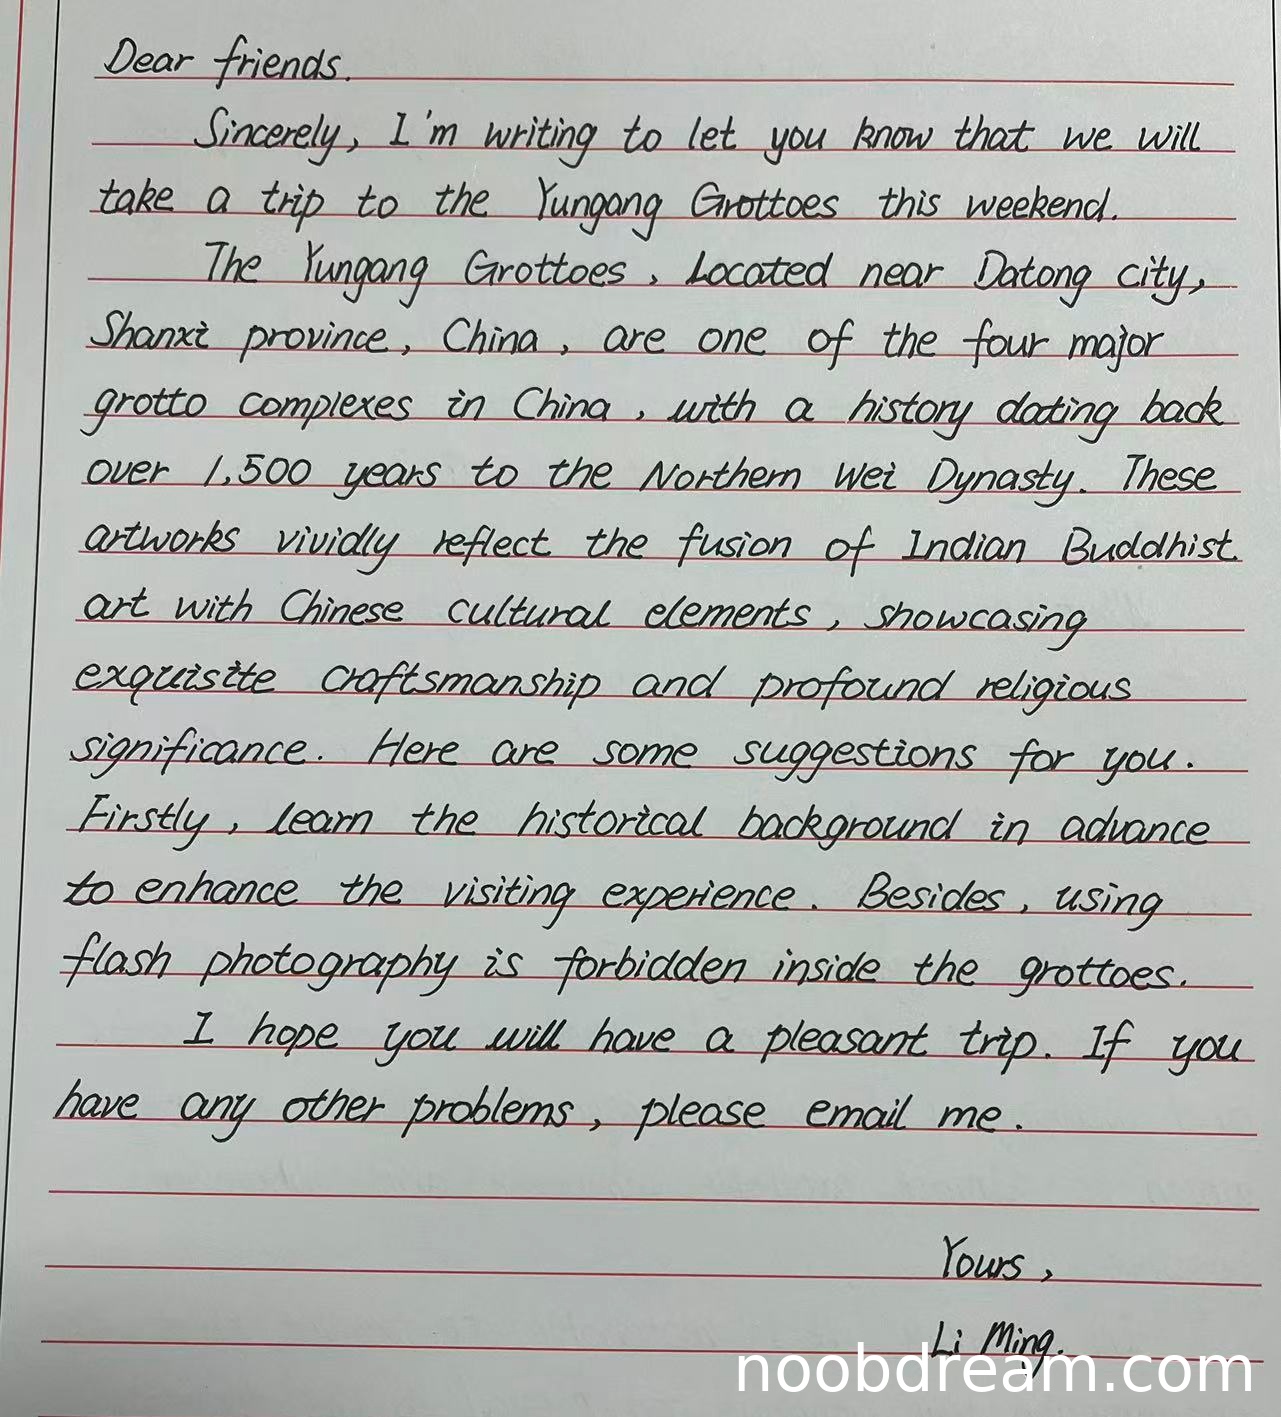 Dear friends.
Sincerely, I'm writing to let you know that we will
take a trip to the Yungang Grottoes this weekend.
The Yungang Grottoes, Located near Datong city,
Shanxi province, China, are one of the four major
grotto complexes in China, with a history dating back
over 1,500 years to the Northern Wei Dynasty. These
artworks vividly reflect the fusion of Indian Buddhist
art with Chinese cultural elements, showcasing
exquisite craftsmanship and profound religious
significance. Here are some suggestions for you.
Firstly, learn the historical background in advance
to enhance the visiting experience. Besides, using
flash photography is forbidden inside the grottoes.
I hope you will have a pleasant trip. If you
have any other problems, please email me.
Yours,
Li Ming.
noobdream.com